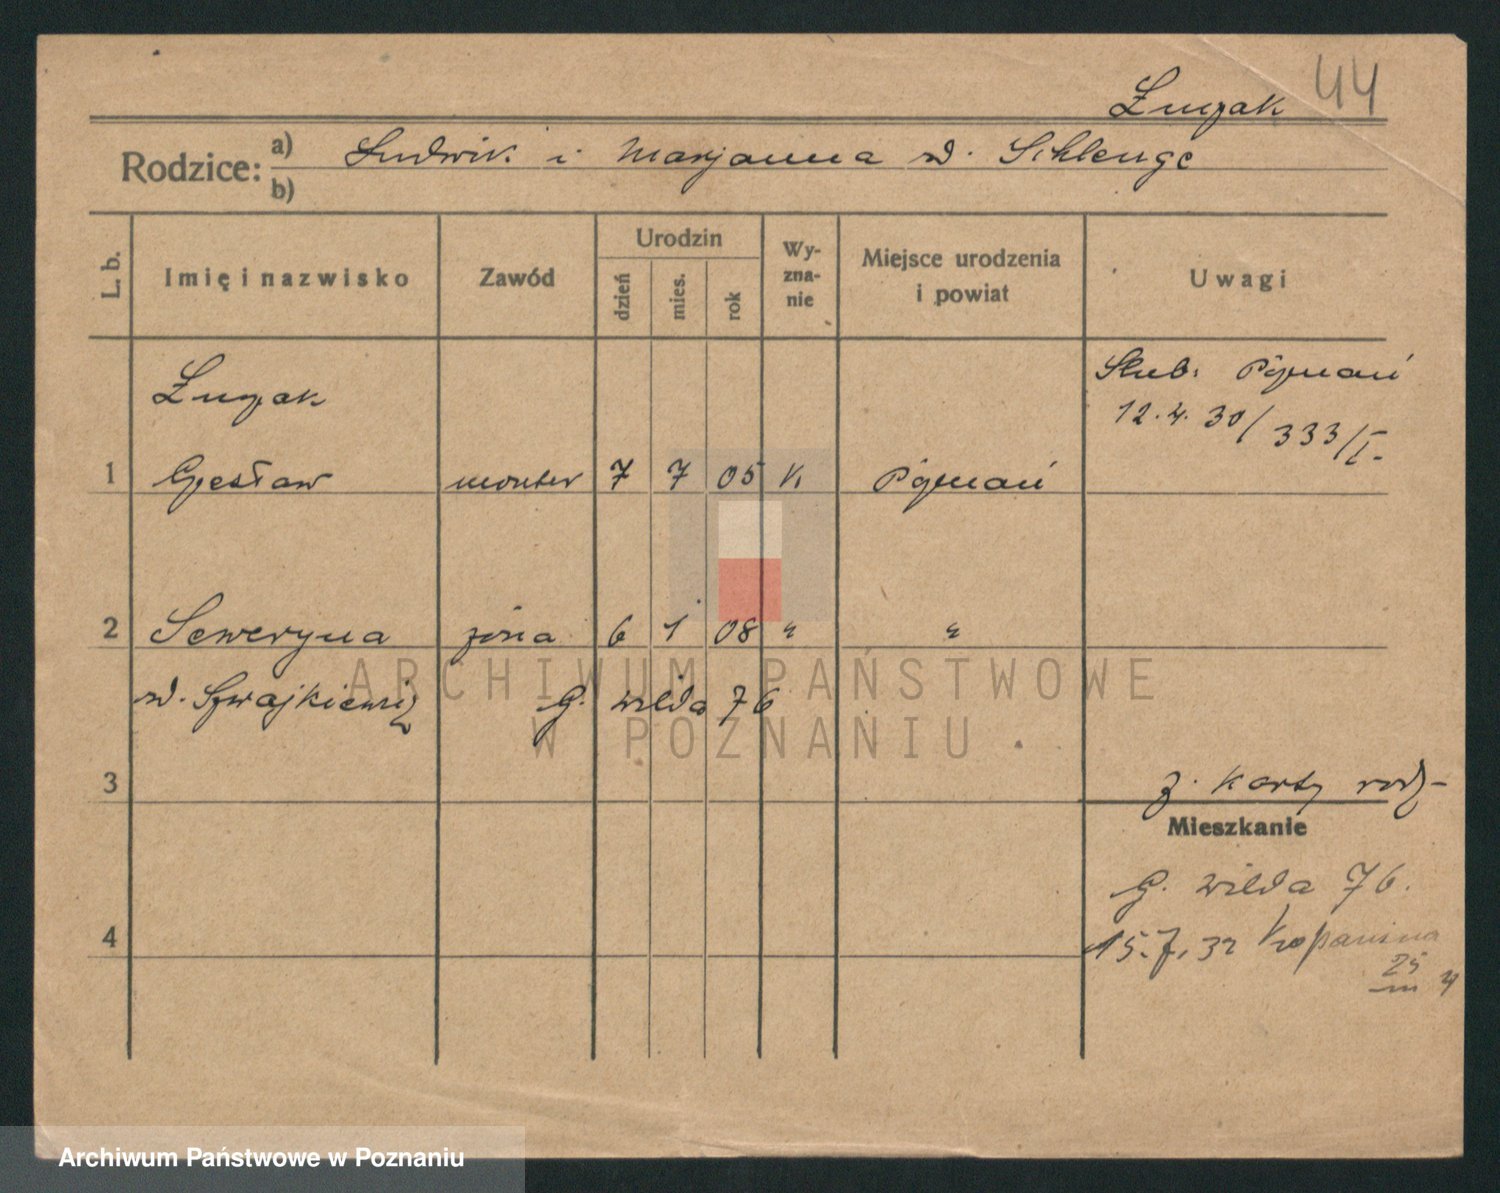 44
Żuczak
Rodzice:
a) Ludwik i Marjanna zd. Schlenge
b)
L. b.
Imię i nazwisko
Zawód
Urodzin
dzień
mies.
rok
Wy-
zna-
nie
Miejsce urodzenia
i powiat
Uwagi
Ślub. Poznań
12.4.30/333/I.
Żuczak
1 Czesław monter 7 7 05 k. Poznań
2 Seweryna żona 6 1 08 " "
zd. Szwajkiewicz G. Wilda 76
3
z. karty rodz-
Mieszkanie
G. Wilda 76.
4
15.7.32
25
ARCHIWUM PAŃSTWOWE
W POZNANIU
Archiwum Państwowe w Poznaniu